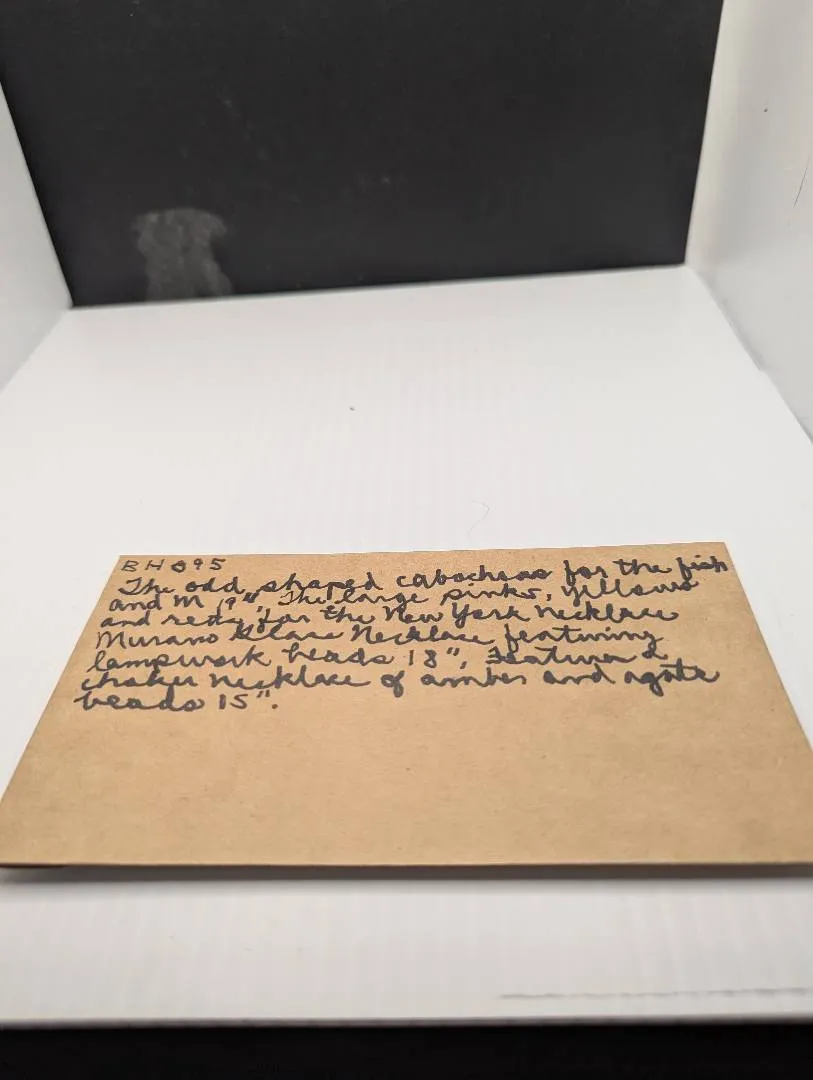 BH 895
The odd shaped cabochons for the fish
and M 19", The large pinks, yellows
and reds for the New York necklace
Murano Glass Necklace featuring
lampwork beads 18", Features a
choker necklace of amber and agate
beads 15".